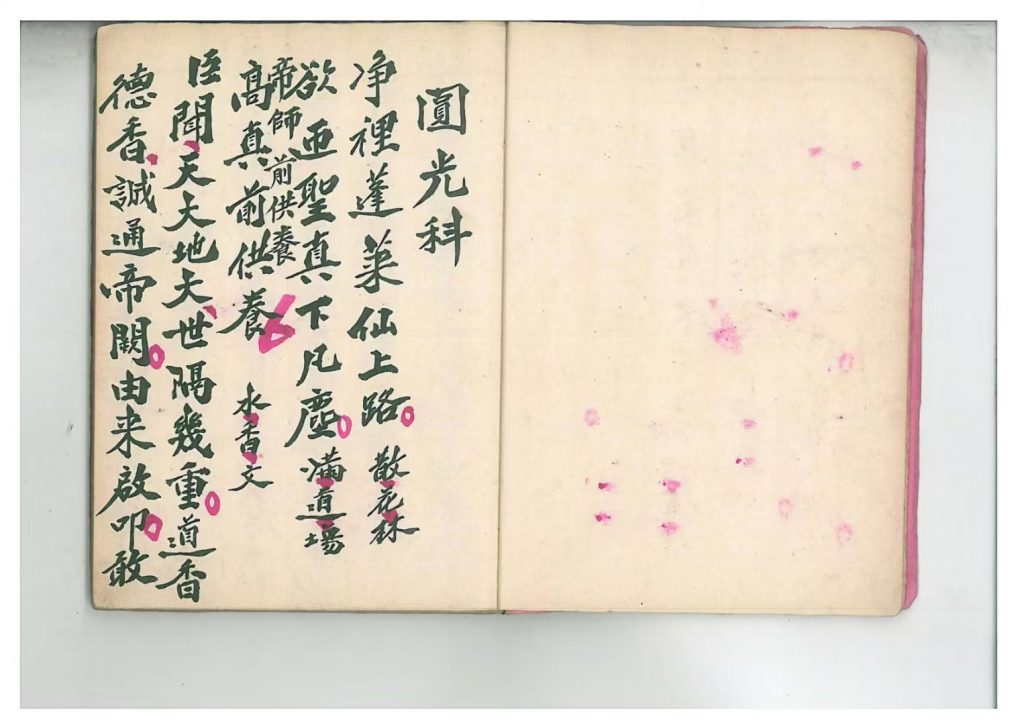 圓光科
净裡蓬萊仙上路散花林
欲迓聖真下凡塵滿道場
帝師前供養
高真前供養 水香文
臣聞天大地大世隔幾重道香
德香誠通帝闕由来啟叩敢